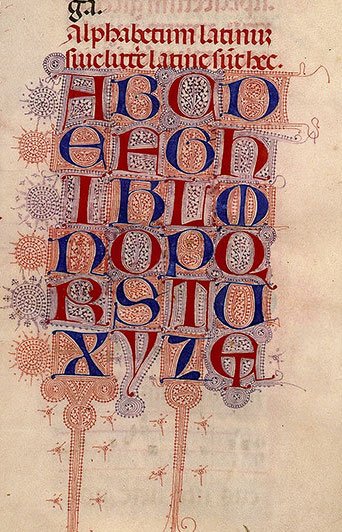 ga.
Alphabetum latinuʒ
siue litt'e latine sūt hec.
A B C D
E F G H
I K L M
N O P Q
R S T U
X Y Z &